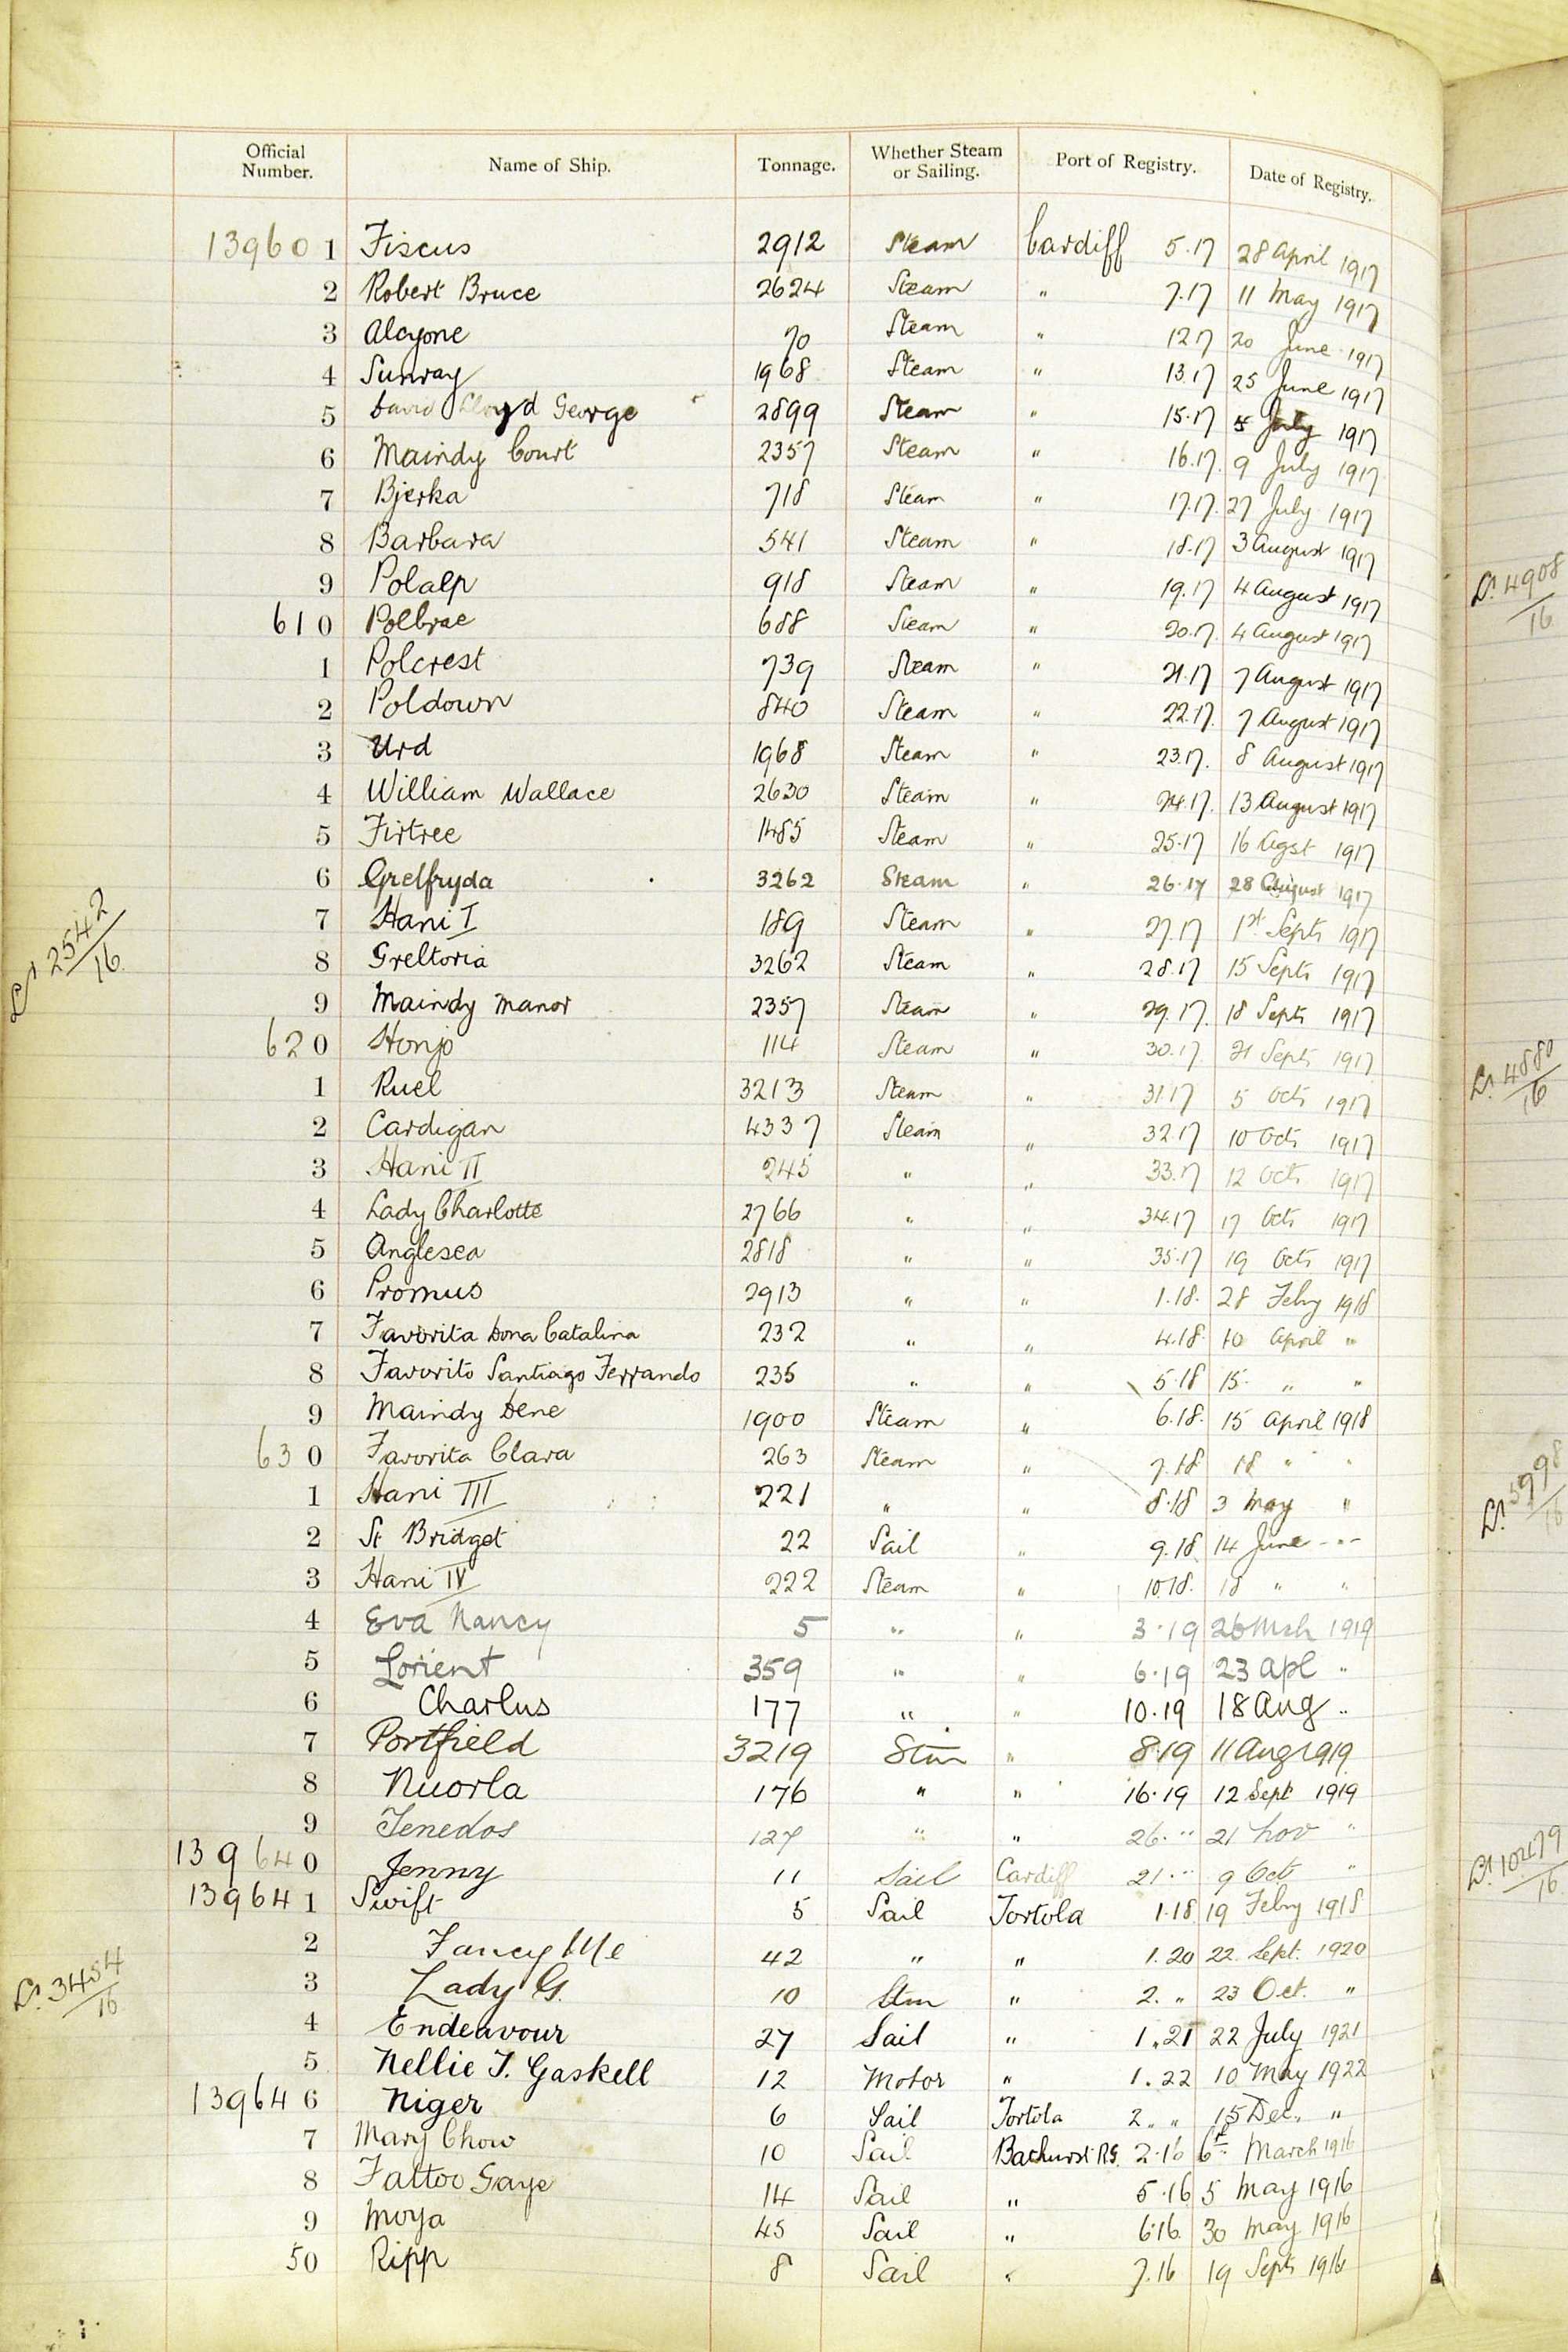 Official Number. Name of Ship. Tonnage. Whether Steam or Sailing. Port of Registry. Date of Registry.
139601 Fiscus 2912 Steam Cardiff 5.17 28 April 1917
2 Robert Bruce 2624 Steam " 7.17 11 May 1917
3 Alcyone 70 Steam " 12.17 20 June 1917
4 Sunray 1968 Steam " 13.17 25 June 1917
5 David Lloyd George 2899 Steam " 15.17 5 July 1917
6 Maindy Court 2357 Steam " 16.17. 9 July 1917
7 Bjerka 718 Steam " 17.17. 27 July 1917
8 Barbara 541 Steam " 18.17 3 August 1917
9 Polalp 918 Steam " 19.17 4 August 1917
610 Polbrae 688 Steam " 20.17. 4 August 1917
1 Polcrest 739 Steam " 21.17 7 August 1917
2 Poldown 840 Steam " 22.17. 7 August 1917
3 Urd 1968 Steam " 23.17. 8 August 1917
4 William Wallace 2630 Steam " 24.17. 13 August 1917
5 Firtree 1485 Steam " 25.17 16 Agst 1917
6 Grelfryda 3262 Steam " 26.17 28 August 1917
7 Hani I 189 Steam " 27.17 1st Sept 1917
8 Greltoria 3262 Steam " 28.17 15 Sept 1917
9 Maindy Manor 2357 Steam " 29.17. 18 Sept 1917
620 Honjo 114 Steam " 30.17. 21 Sept 1917
1 Ruel 3213 Steam " 31.17 5 Oct 1917
2 Cardigan 4337 Steam " 32.17 10 Oct 1917
3 Hani II 245 " " 33.17 12 Oct 1917
4 Lady Charlotte 2766 " " 34.17 17 Oct 1917
5 Anglesea 2818 " " 35.17 19 Oct 1917
6 Promus 2913 " " 1.18. 28 Febry 1918
7 Favorita Dona Catalina 232 " " 4.18. 10 April "
8 Favorito Santiago Ferrando 235 " " 5.18 15. " "
9 Maindy Dene 1900 Steam " 6.18. 15 April 1918
630 Favorita Clara 263 Steam " 7.18 18 " "
1 Hani III 221 " " 8.18 3 May "
2 St Bridget 22 Sail " 9.18. 14 June "
3 Hani IV 222 Steam " 10.18. 18 " "
4 Eva Nancy 5 " " 3.19 26 Mch 1919
5 Lorient 359 " " 6.19 23 Apl "
6 Charlus 177 " " 10.19 18 Aug "
7 Portfield 3219 Stm " 8.19 11 Aug 1919
8 Nuorla 176 " " 16.19 12 Sept 1919
9 Tenedos 127 " " 26. " 21 Nov "
139640 Jenny 11 Sail Cardiff 21. " 9 Oct "
139641 Swift 5 Sail Tortola 1.18 19 Febry 1918
2 Fancy Me 42 " " 1.20 22. Sept. 1920
3 Lady G. 10 Stm " 2. " 23 Oct. "
4 Endeavour 27 Sail " 1.21 22 July 1921
5 Nellie J. Gaskell 12 Motor " 1.22 10 May 1922
139646 Niger 6 Sail Tortola 2. " 15 Dec. "
7 Mary Chow 10 Sail Bathurst RG. 2.16 6th March 1916
8 Fattoo Gaye 14 Sail " 5.16 5 May 1916
9 Moya 45 Sail " 6.16. 30 May 1916
50 Ripp 8 Sail " 7.16 19 Sept 1916
2542/16
3454/16
4908/16
4880/16
5998/16
10479/16